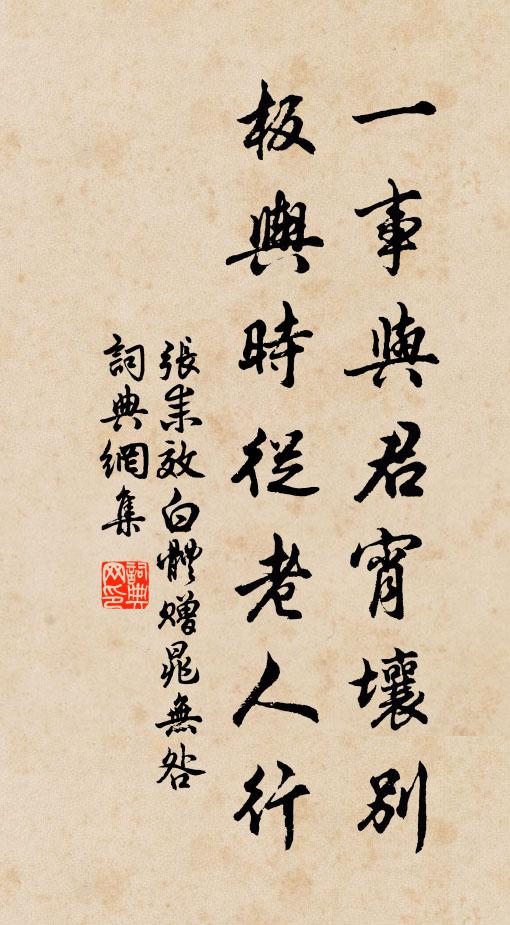 一事與君宵壤別
板輿時從老人行
張耒效白體贈晁無咎
詞典網集
詞典網印